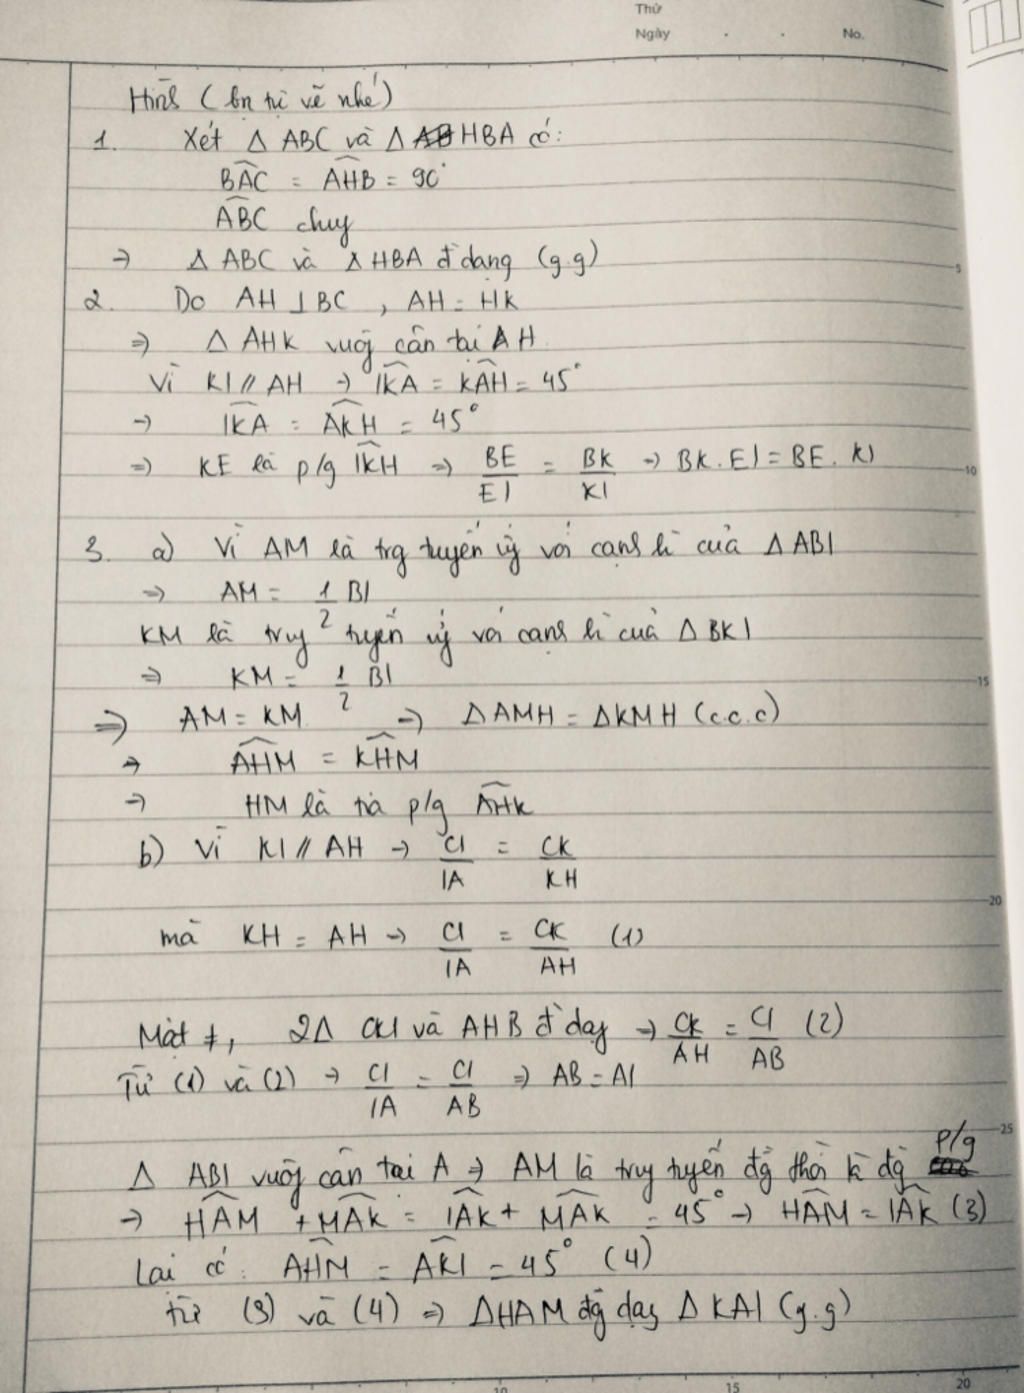 Thứ
Ngày . . No.
Hình (bn tự vẽ nhé)
1. Xét Δ ABC và Δ HBA có:
BAC = AHB = 90°
ABC chung
→ Δ ABC và Δ HBA đ dạng (g.g)
2. Do AH ⊥ BC, AH = HK
⇒ Δ AHK vuôg cân tại H
Vì KI // AH → IKA = KAH = 45°
→ IKA = AKH = 45°
⇒ KE là p/g IKH ⇒ BE/EI = BK/KI → BK.EI = BE.KI
5
10
3. a) Vì AM là trg tuyến ứg với cạnh h` của Δ ABI
⇒ AM = 1/2 BI
KM là trug tuyến ứg với cạnh h` của Δ BKI
⇒ KM = 1/2 BI
15
⇒ AM = KM → ΔAMH = ΔKMH (c.c.c)
→ AHM = KHM
→ HM là tia p/g AHK
b) Vì KI // AH → CI/IA = CK/KH
20
mà KH = AH → CI/IA = CK/AH (1)
Mặt ≠, 2Δ CKI và AHB đ dạg → CK/AH = CI/AB (2)
Từ (1) và (2) → CI/IA = CI/AB ⇒ AB = AI
25
Δ ABI vuôg cân tại A → AM là trug tuyến đg thời là đg p/g
→ HAM + MAK = IAK + MAK = 45° → HAM = IAK (3)
Lại có: AHM = AKI = 45° (4)
từ (3) và (4) ⇒ ΔHAM đg dạg Δ KAI (g.g)
10 15 20